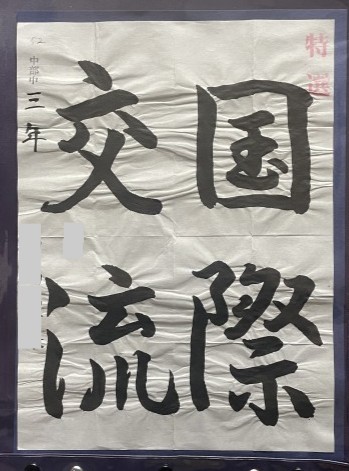 特選
国際
交流
中部中
三年